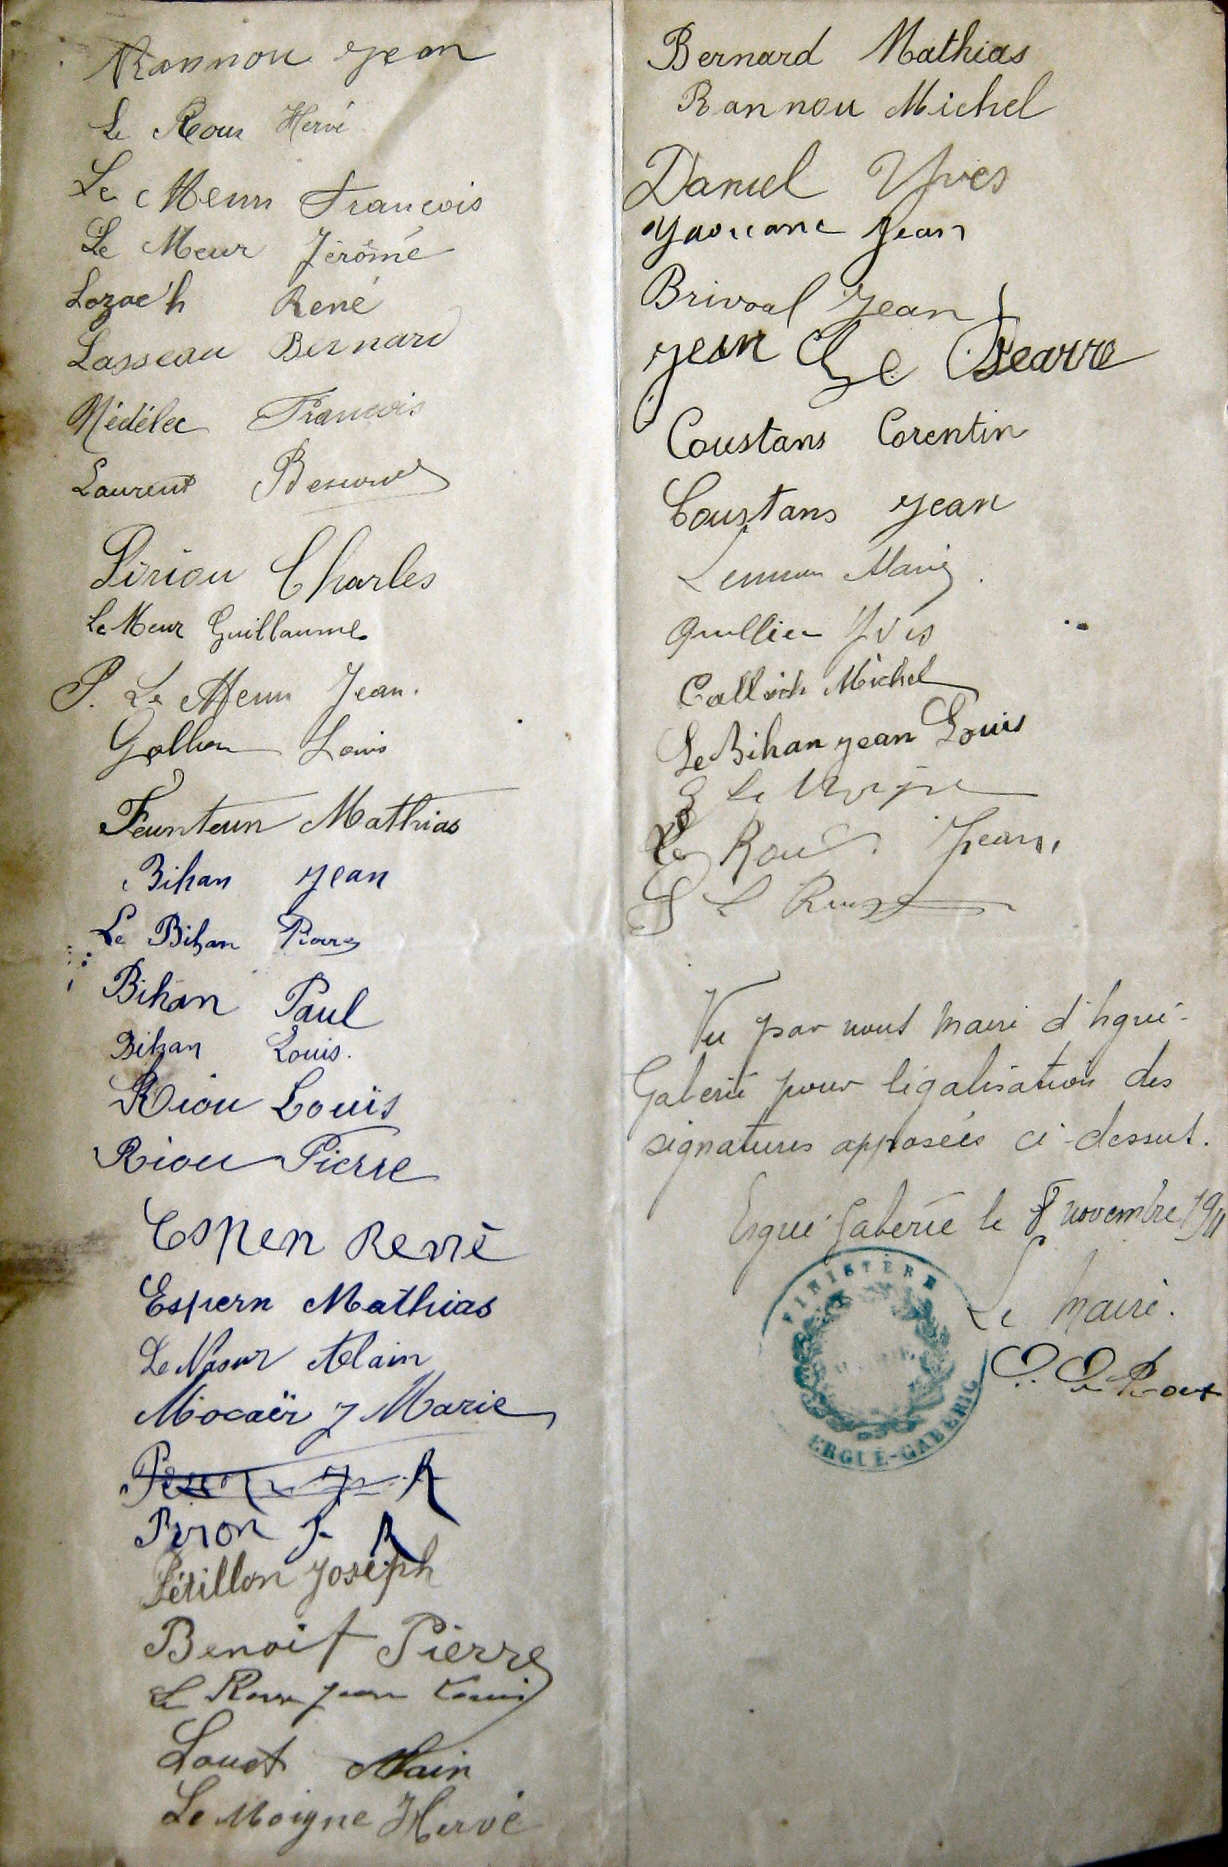 Rannou Jean
Le Roux Hervé
Le Menn François
Le Meur Jérôme
Lozac'h René
Lasseau Bernard
Nédélec François
Laurent
Piriou Charles
Le Meur Guillaume
P. Le Menn Jean.
Louis
Feunteun Mathias
Bihan Jean
Le Bihan Pierre
Bihan Paul
Bihan Louis.
Riou Louïs
Riou Pierre
Espern René
Espern Mathias
Le Nasur Alain
Mocaër J Marie
Peron J. R
Pétillon Joseph
Benoit Pierre
Le Roux Jean Louis
Louet Alain
Le Moigne Hervé
Bernard Mathias
Rannou Michel
Daniel Yves
Yaouanc Jean
Brivoal Jean
Jean Le
Coustans Corentin
Coustans Jean
Yves
Michel
Le Bihan Jean Louis
Le
Le Roux Jean.
Vu par nous maire d'Ergué-
Gaberic pour légalisation des
signatures apposées ci-dessus.
Ergué-Gaberic le 8 novembre 1911
Le Maire.
Le Roux
FINISTÈRE
ERGUÉ-GABERIC